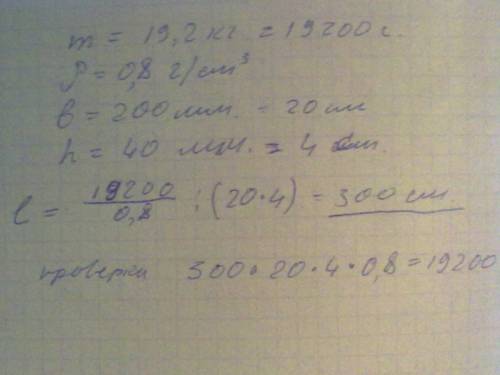 m = 19,2 кг = 19200 г.
ρ = 0,8 г/cm³
b = 200 мм. = 20 см
h = 40 мм. = 4 см.
l = 19200/0,8 : (20·4) = 300 см.
проверка 300·20·4·0,8 = 19200